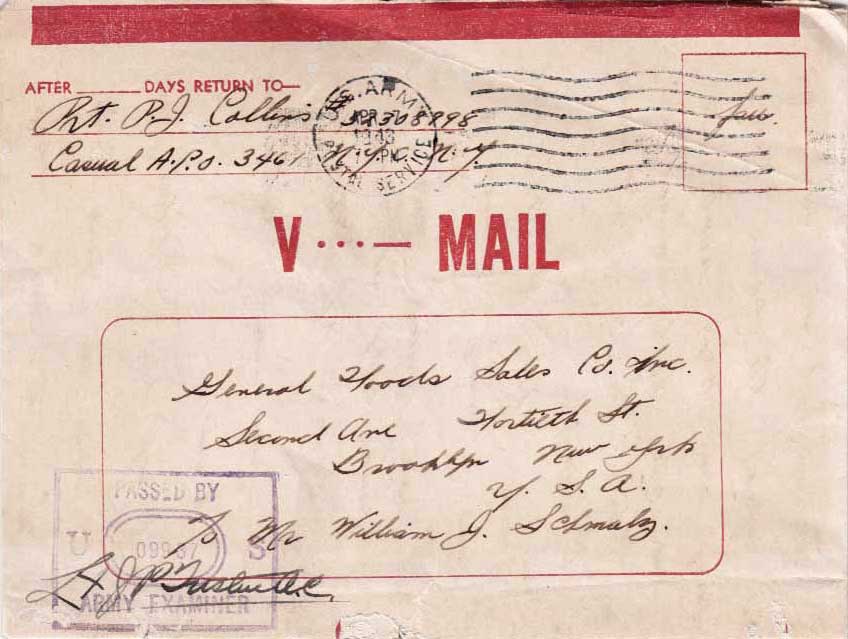 AFTER ______ DAYS RETURN TO—
Pvt. P. J. Collins 32308898
Casual A.P.O. 3467 N.Y.C. N.Y.
U.S. ARMY
APR 7
1943
PM
POSTAL SERVICE
Free
V ···— MAIL
General Foods Sales Co. Inc.
Second Ave Fortieth St.
Brooklyn New York
U. S. A.
To Mr William J. Schmalz.
PASSED BY
U 09937 S
ARMY EXAMINER